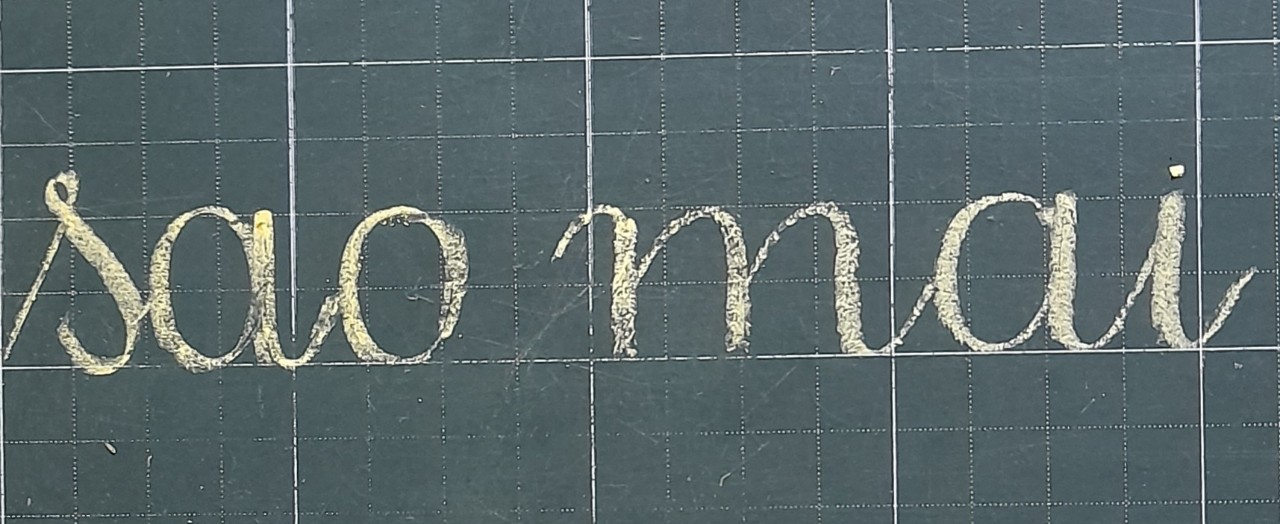 sao mai